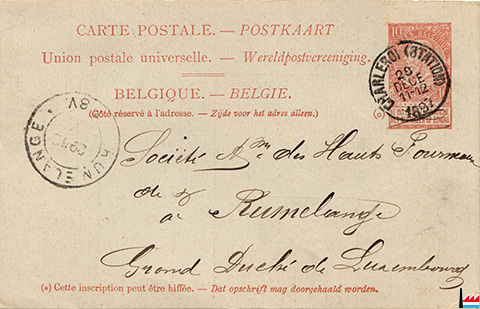 CARTE POSTALE. — POSTKAART
Union postale universelle. — Wereldpostvereeniging.
BELGIQUE. — BELGIE.
(Côté réservé à l'adresse. — Zijde voor het adres alleen.)
10
CHARLEROI (STATION)
29
DECE
11-12
1897
RUMELANGE
8V
Société Ame des Hauts Fourneaux
de
a Rumelange
Grand Duché de Luxembourg
(*) Cette inscription peut être biffée. — Dat opschrift mag doorgehaald worden.